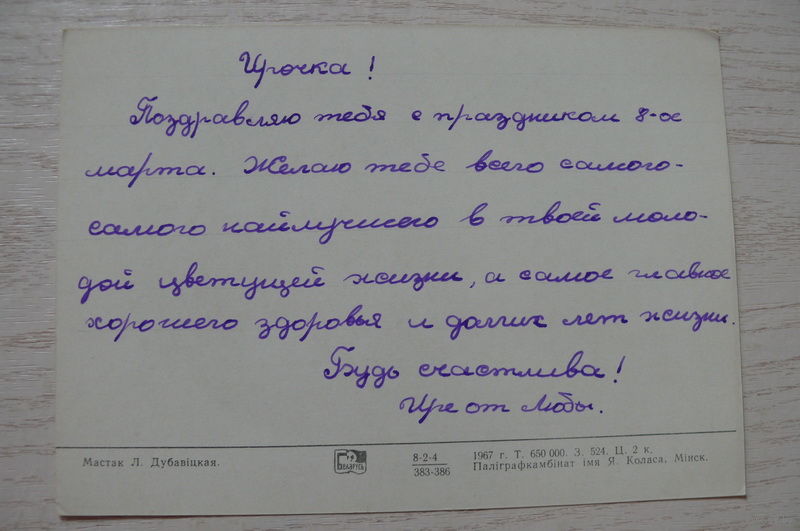 Ирочка!
Поздравляю тебя с праздником 8-ое
марта. Желаю тебе всего самого-
самого наилучшего в твоей моло-
дой цветущей жизни, а самое главное
хорошего здоровья и долгих лет жизни.
Будь счастлива!
Ире от Любы.
Мастак Л. Дубавіцкая.
БЕЛАРУСЬ
8-2-4
383-386
1967 г. Т. 650 000. З. 524. Ц. 2 к.
Паліграфкамбінат імя Я. Коласа, Мінск.